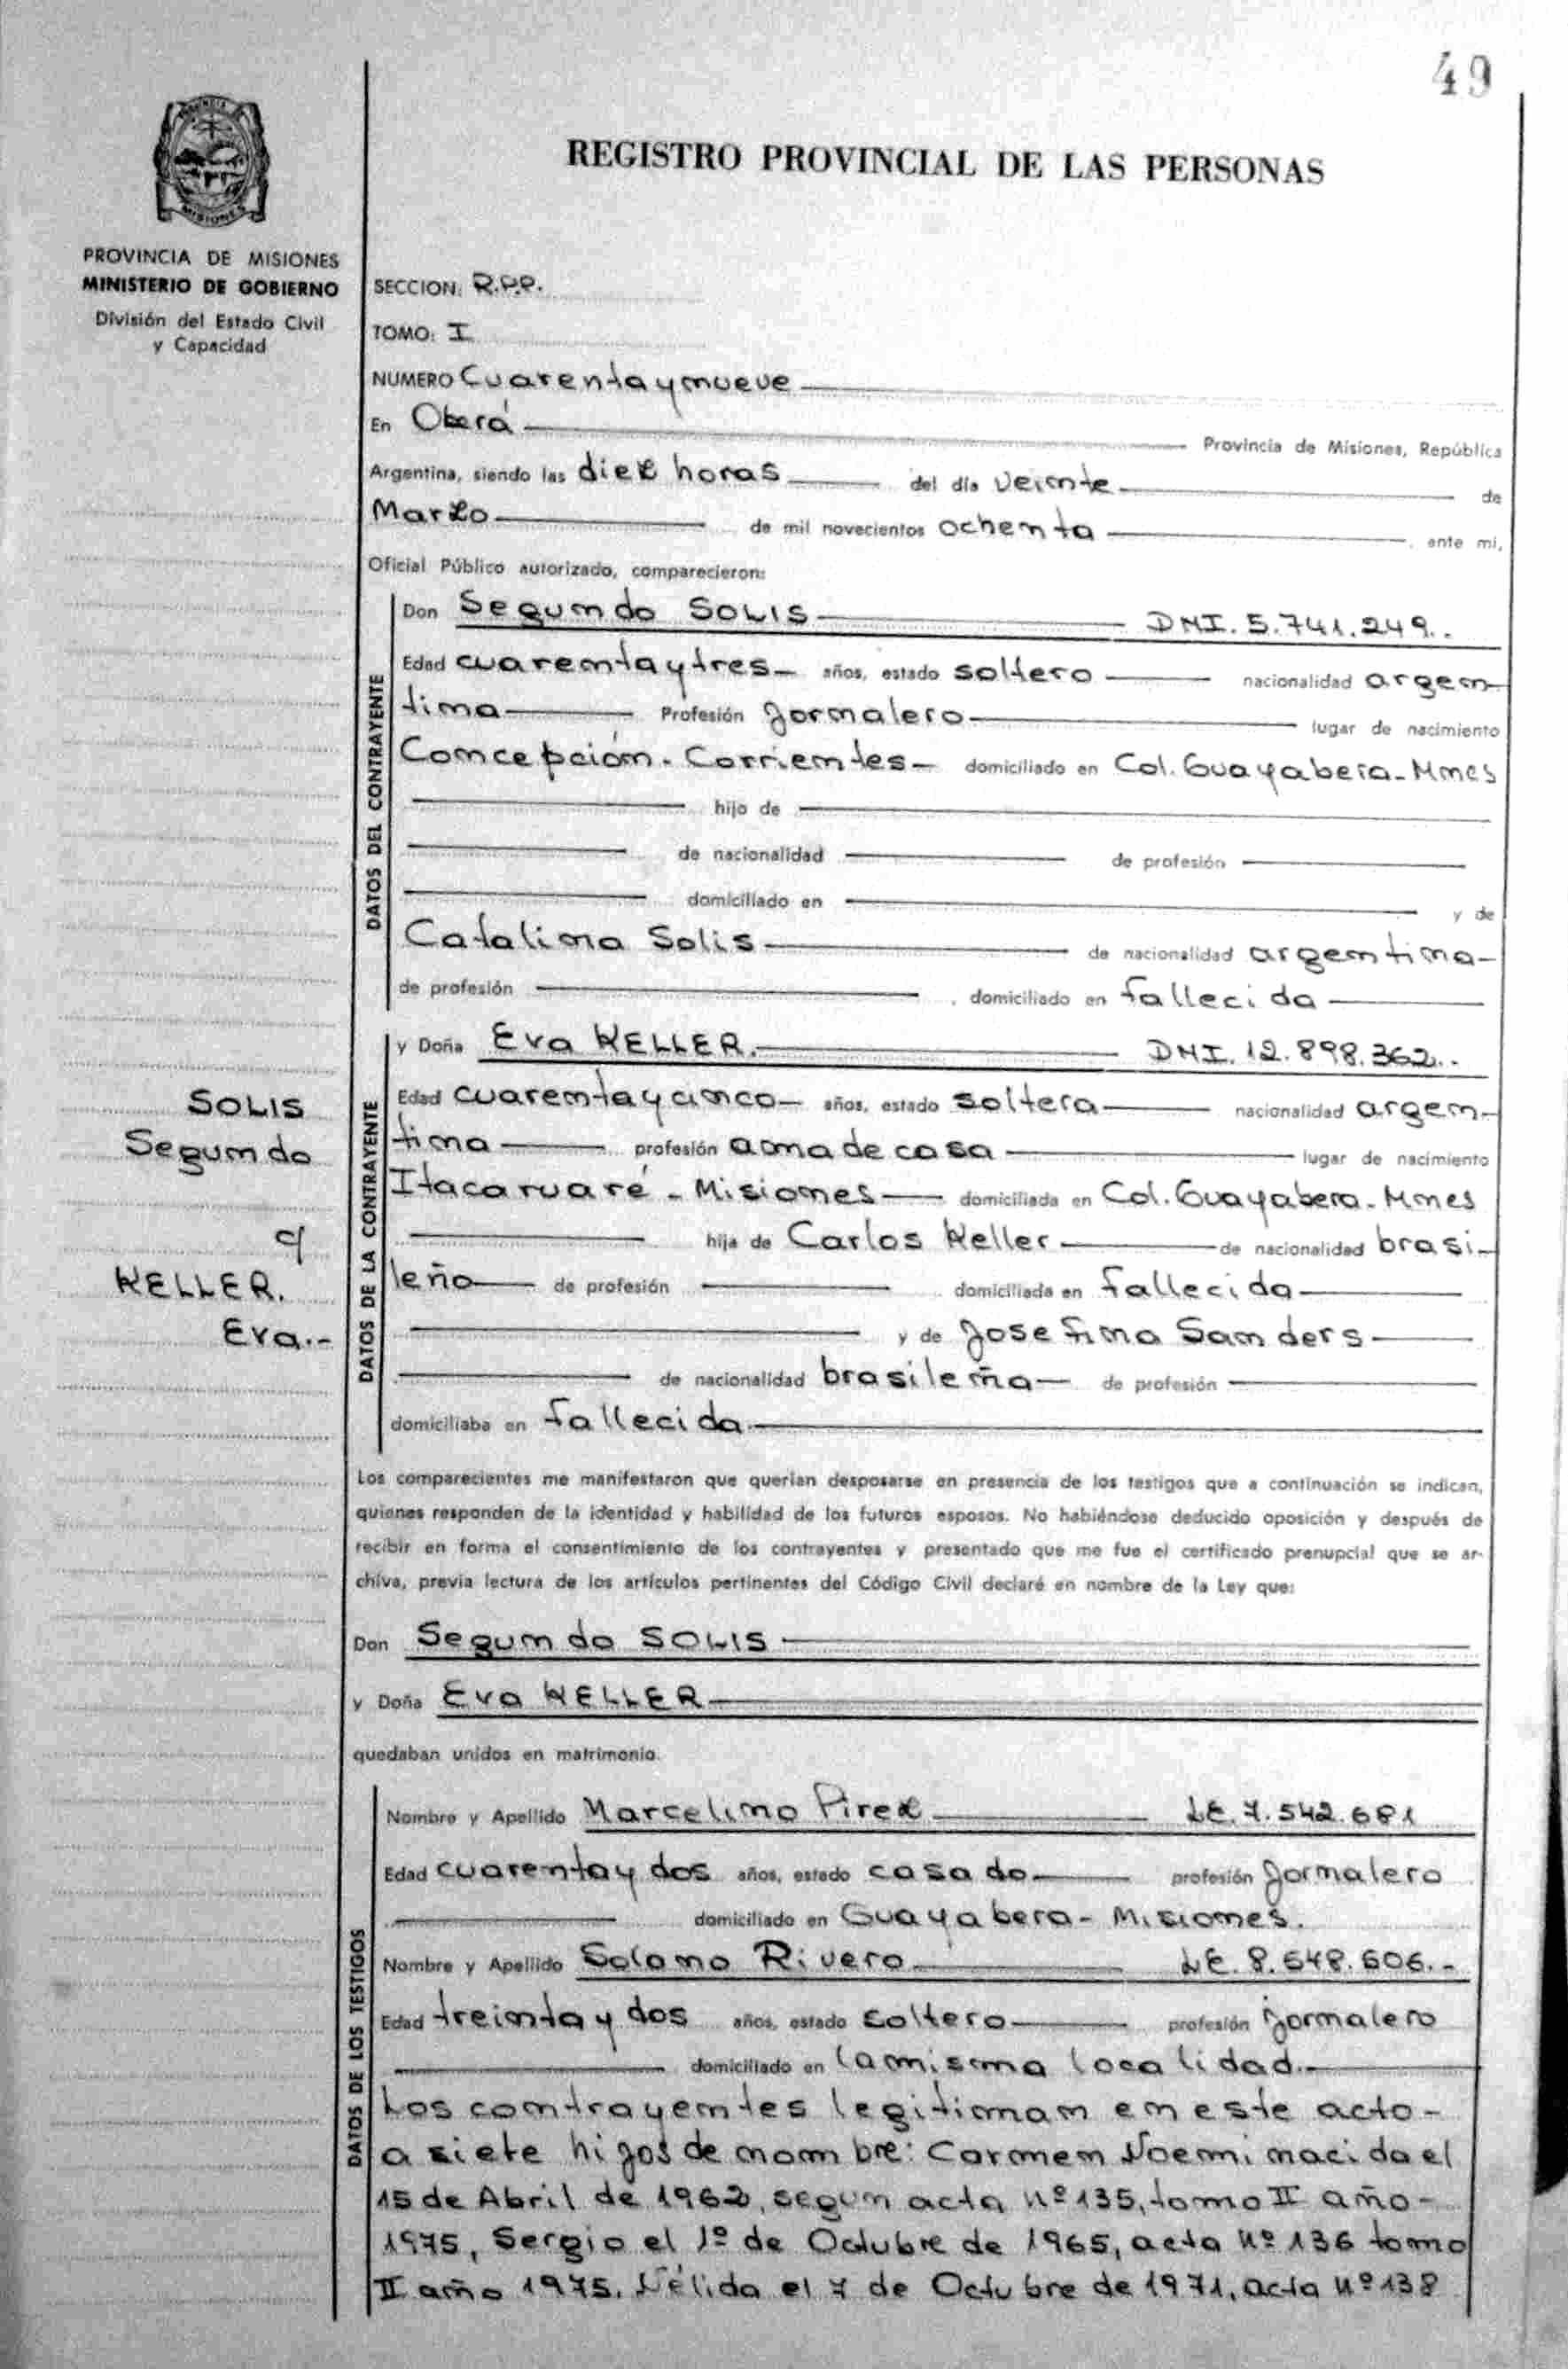 49
REGISTRO PROVINCIAL DE LAS PERSONAS
MISIONES
PROVINCIA DE MISIONES
MINISTERIO DE GOBIERNO
División del Estado Civil
y Capacidad
SECCION: R.P.P.
TOMO: I
NUMERO Cuarenta y nueve
En Oberá Provincia de Misiones, República
Argentina, siendo las diez horas del día veinte de
Marzo de mil novecientos ochenta, ante mi,
Oficial Público autorizado, comparecieron:
DATOS DEL CONTRAYENTE
Don Segundo SOLIS DNI. 5.741.249.
Edad cuarenta y tres años, estado soltero nacionalidad argen-
tina Profesión Jornalero lugar de nacimiento
Concepción - Corrientes domiciliado en Col. Guayabera - Mnes
hijo de
de nacionalidad de profesión
domiciliado en y de
Catalina Solis de nacionalidad argentina
de profesión , domiciliado en fallecida
DATOS DE LA CONTRAYENTE
y Doña Eva KELLER. DNI. 12.898.362.
Edad cuarenta y cinco años, estado soltera nacionalidad argen-
tina profesión ama de casa lugar de nacimiento
Itacaruaré - Misiones domiciliada en Col. Guayabera - Mnes
hija de Carlos Keller de nacionalidad brasi-
leño de profesión domiciliada en fallecido
y de Josefina Sanders
de nacionalidad brasileña de profesión
domiciliaba en fallecida
SOLIS
Segundo
c/
KELLER.
Eva.-
Los comparecientes me manifestaron que querían desposarse en presencia de los testigos que a continuación se indican,
quienes responden de la identidad y habilidad de los futuros esposos. No habiéndose deducido oposición y después de
recibir en forma el consentimiento de los contrayentes y presentado que me fue el certificado prenupcial que se ar-
chiva, previa lectura de los artículos pertinentes del Código Civil declaré en nombre de la Ley que:
Don Segundo SOLIS
y Doña Eva KELLER
quedaban unidos en matrimonio.
DATOS DE LOS TESTIGOS
Nombre y Apellido Marcelino Pirez LE. 7.542.681
Edad cuarenta y dos años, estado casado profesión Jornalero
domiciliado en Guayabera - Misiones.
Nombre y Apellido Solano Rivero LE. 8.548.606.-
Edad treinta y dos años, estado soltero profesión jornalero
domiciliado en la misma localidad.
Los contrayentes legitiman en este acto-
a siete hijos de nombre: Carmen Noemi nacida el
15 de Abril de 1962, segun acta nº 135, tomo II año-
1975, Sergio el 1º de Octubre de 1965, acta nº 136 tomo
II año 1975. Nélida el 7 de Octubre de 1971, acta nº 138